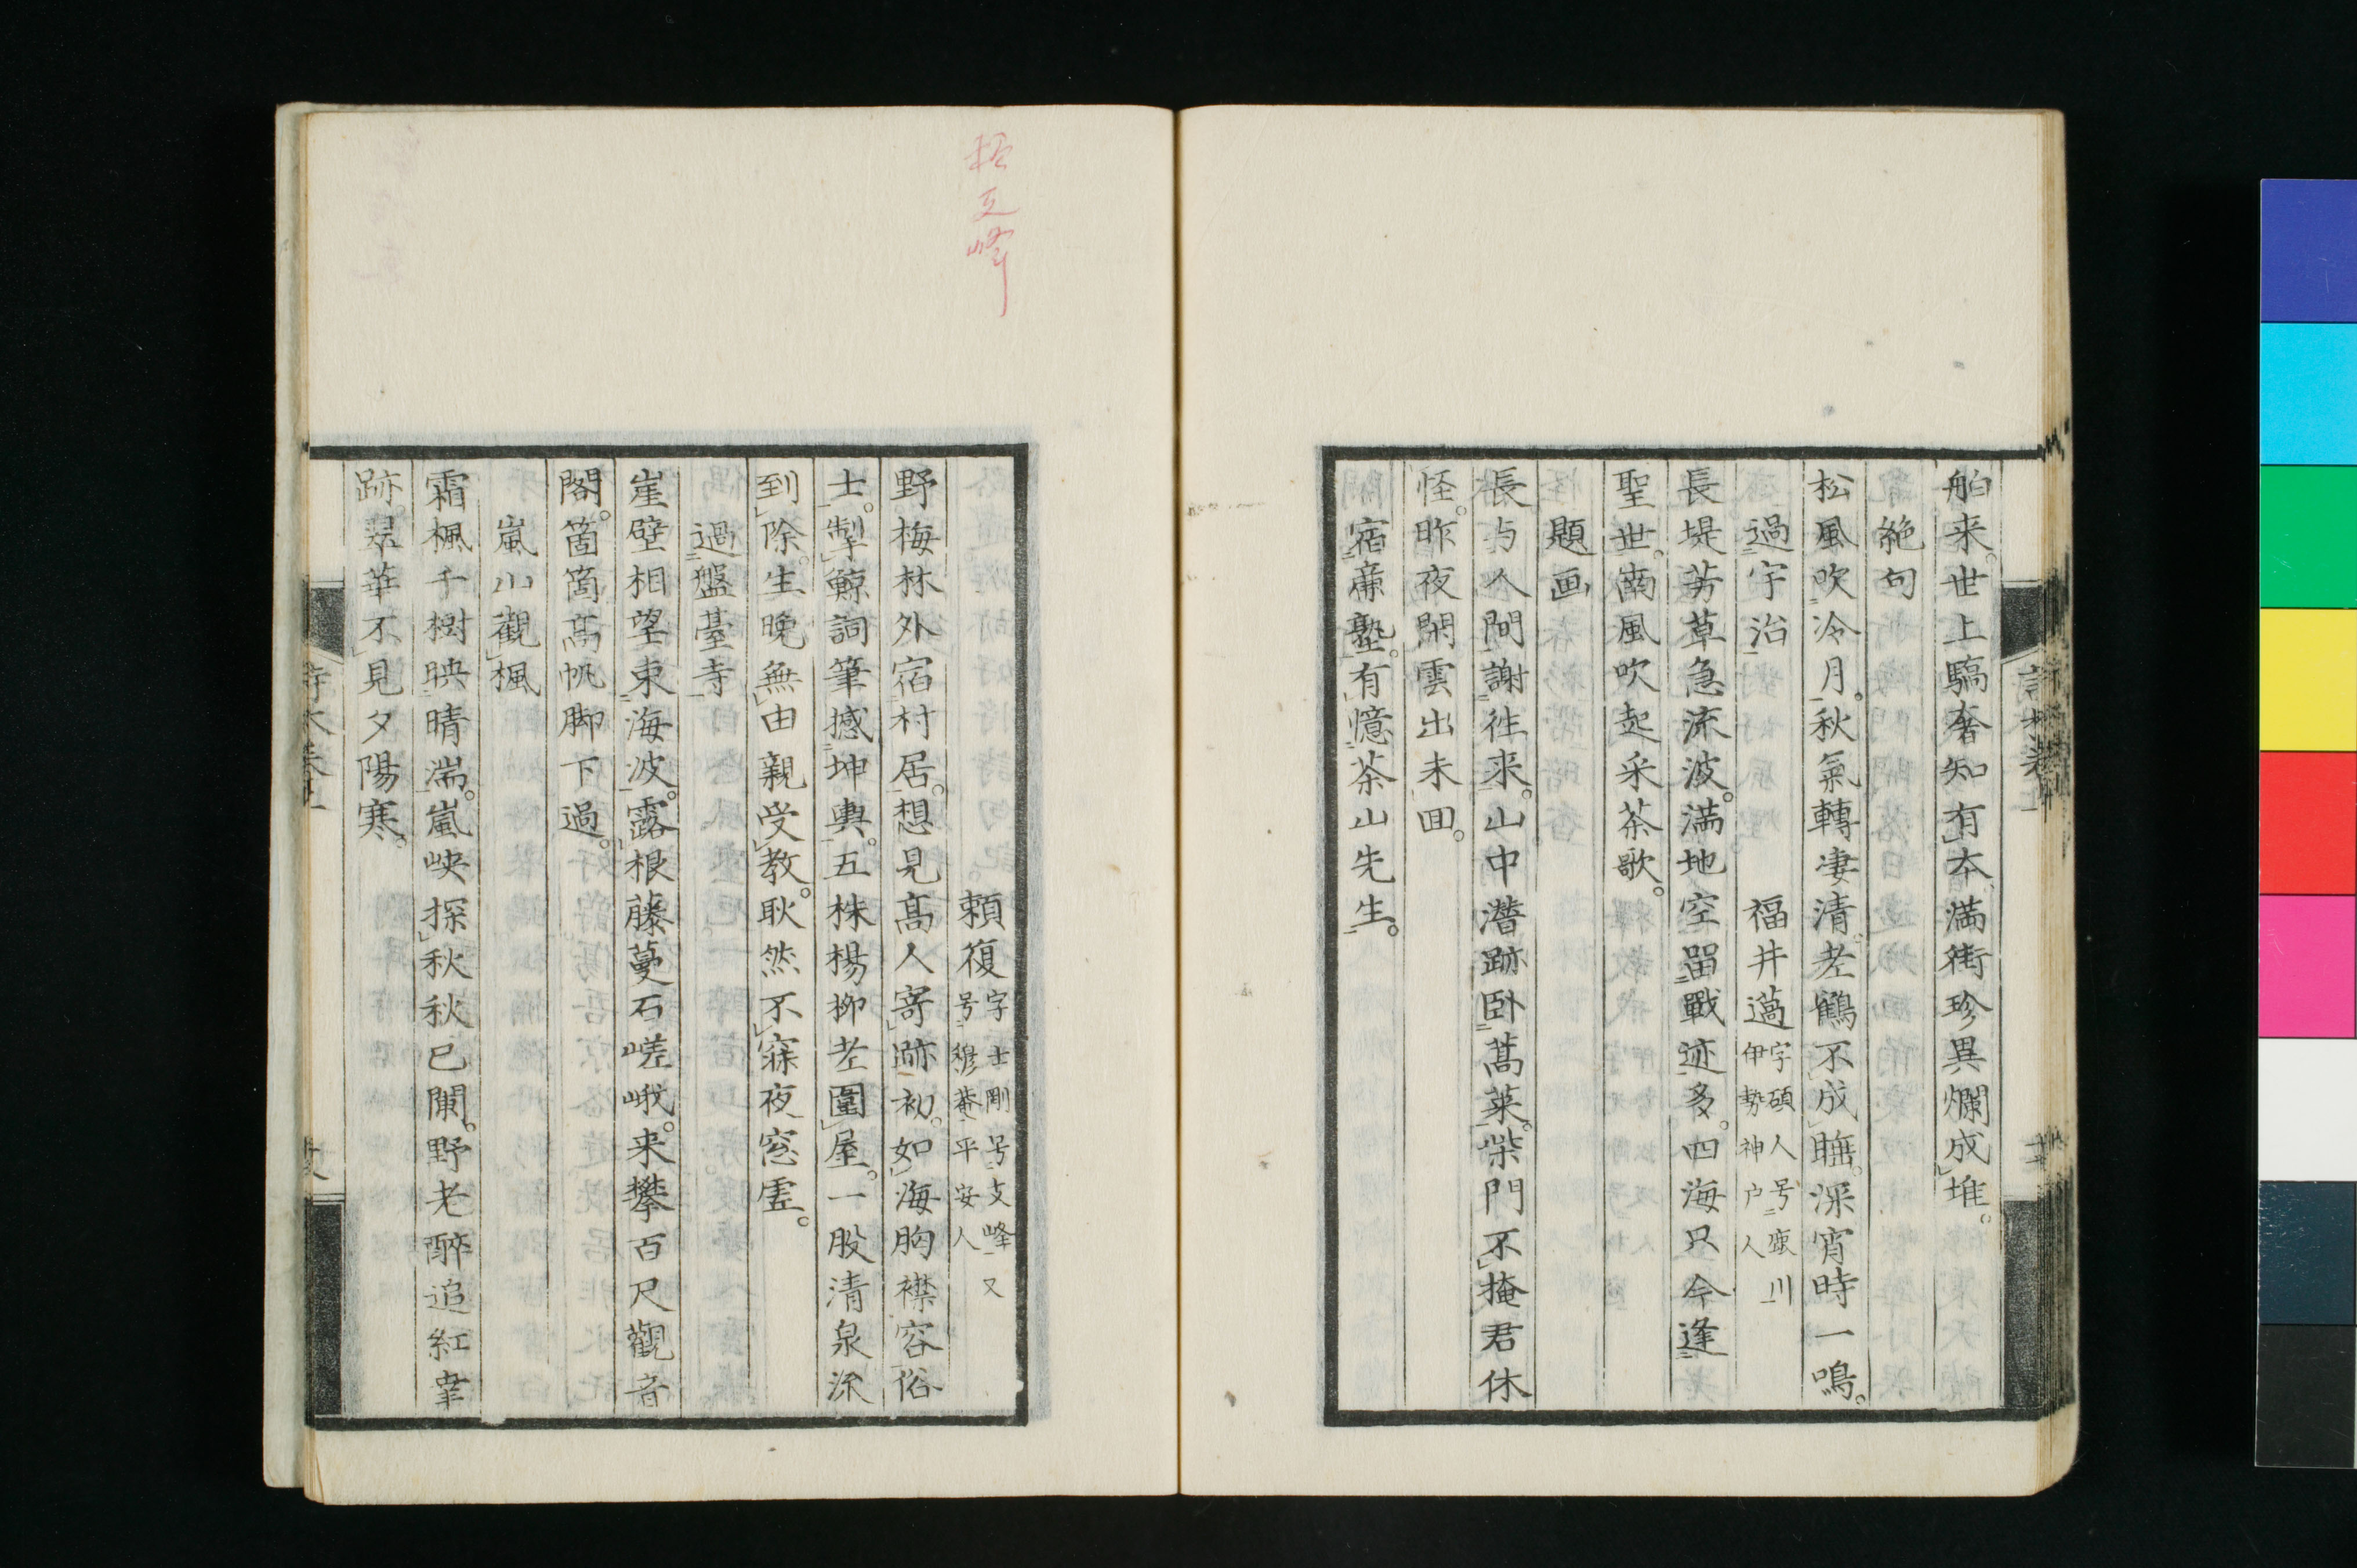 舶来。世上驕奢知有本。満街珍異爛成堆。
絶句
松風吹冷月。秋氣轉凄清。老鶴不成睡。深宵時一鳴。
過宇治
福井邁 字碩人号鹿川
伊勢神户人
長堤芳草急流波。満地空畱戰迹多。四海只今逢
聖世。南風吹起采茶歌。
題画
長与人間謝往来。山中潜跡卧蒿萊。柴門不掩君休
怪。昨夜閑雲出未回。
宿廉塾。有憶茶山先生。
頼復 字士剛号支峰又
号緑菴平安人
野梅林外宿村居。想見高人寄跡初。如海胸襟容俗
士。掣鯨詞筆撼坤輿。五株楊柳老圍屋。一股清泉流
到除。生晚無由親受教。耿然不寐夜窓虛。
過盤臺寺
崖壁相望東海波。露根藤蔓石嵯峨。来攀百尺觀音
閣。箇箇高帆脚下過。
嵐山觀楓
霜楓千樹映晴湍。嵐峡探秋秋已闌。野老醉追紅葉
跡。翠華不見夕陽寒。